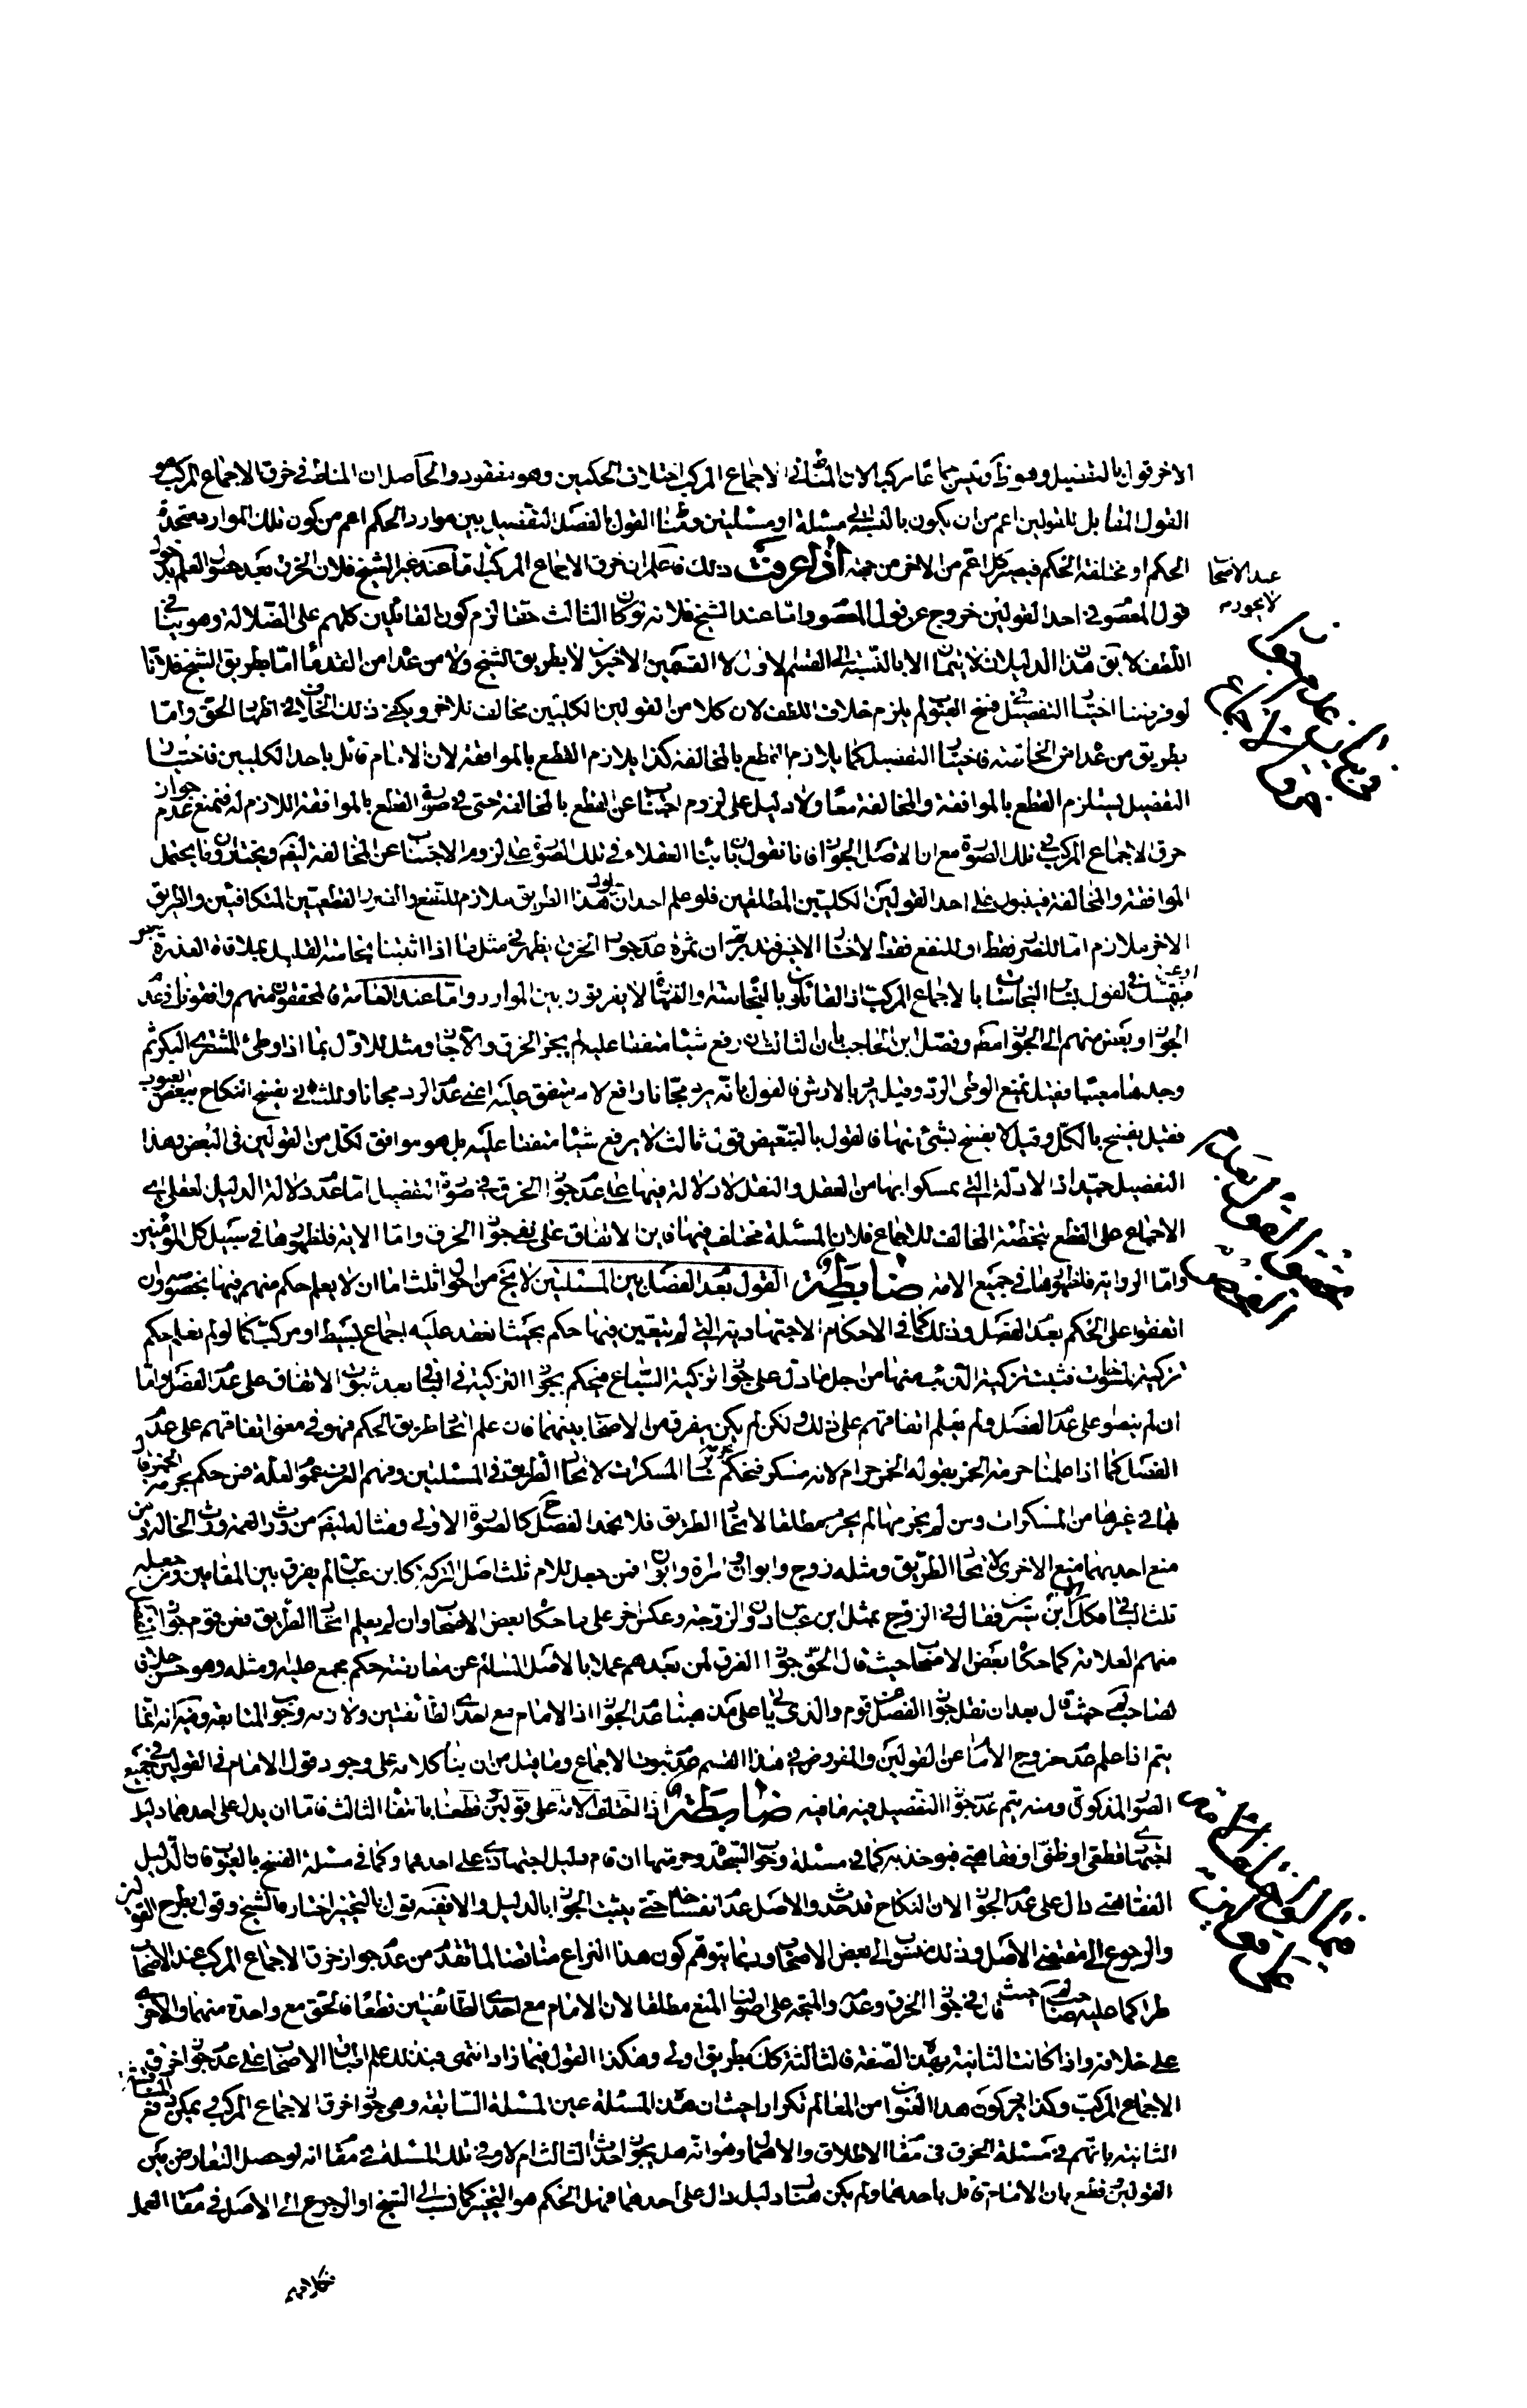 الاخر قول بالتفصيل وهو ظ وليس اجماعًا مركبا لان المناط في الاجماع المركب اختلاف الحكمين وهو مفقود والحاصل ان المناط في خرق الاجماع المركب هو
القول المقابل للقولين اعم من ان يكون بالنسبة الى مسئلة او مسئلتين ومناط القول بالفصل التفصيل بين موارد الحكم اعم من كون تلك الموارد متحدة
الحكم او مختلفة الحكم فيصير كل اعم من الاخر من جهة اذا عرفت ذلك فاعلم ان خرق الاجماع المركب اما عند غير الشيخ فلان الخرق بعد حصول العلم بدخول
قول المعصوم في احد القولين خروج عن قول المعصوم واما عند الشيخ فلانه لو كان الثالث حقا لزم كون القائلين كلهم على الضلالة وهو ينافي
اللطف لا يق هذان الدليلان لا يتمان الا بالنسبة الى القسم الاول لا القسمين الاخيرين لا بطريق الشيخ ولا من عداه من القدماء اما طريق الشيخ فلانا
لو فرضنا اختيار التفصيل في فسخ العيوب لم يلزم خلاف اللطف لان كلا من القولين الكليين مخالف للاخر ويكفي ذلك الخلاف في اظهار الحق واما
بطريق من عداه من الخاصة فاختيار التفصيل كما يلازم القطع بالمخالفة كذا يلازم القطع بالموافقة لان الامام قائل باحد الكليين فاختيار
التفصيل يستلزم القطع بالموافقة والمخالفة معًا ولا دليل على لزوم اجتناب عن القطع بالمخالفة حتى في صورة القطع بالموافقة اللازم له فنمنع عدم جواز
خرق الاجماع المركب في تلك الصورة مع ان الاصل الجواز فانا نقول ان بناء العقلاء في تلك الصورة على لزوم الاجتناب عن المخالفة ليقم ويختارون ما يحتمل
الموافقة والمخالفة فيبنون على احد القولين الكليين المطلقين فلو علم احد ان سلوك هذا الطريق ملازم للنفع والضرر القطعيين المتكافئين والطريق
الاخر ملازم اما للضرر فقط او للنفع فقط لاختار الاخير فتدبر ثم ان ثمرة عدم جواز الخرق يظهر في مثل ما اذا اثبتنا نجاسة القليل بملاقاة العذرة
الجواز وبعض منهم الى الجواز مطلقا وفصل ابن الحاجب بان الثالث ان رفع شيئا متفقا عليه لم يجز الخرق والا جاز ومثل للاول بما اذا وطئ المشتري البكر ثم
وجد بها عيبا فقيل يمنع الوطي الرد وقيل يرد بالارش فالقول بانه يرد مجانا رافع لامر متفق عليه اعني عدم الرد مجانا وللثاني بفسخ النكاح ببعض العيوب
فقيل يفسخ بالكل وقيل لا يفسخ بشئ منها فالقول بالتبعيض قول ثالث لا يرفع شيئا متفقا عليه بل هو موافق لكل من القولين في البعض وهذا
التفصيل جيد اذ الادلة التي تمسكوا بها من العقل والنقل لا دلالة فيها على عدم جواز الخرق في صورة التفصيل اما عدم دلالة الدليل العقلي اي
الاجماع على القطع بتخطئة المخالف للاجماع فلان المسئلة مختلف فيها فاين الاتفاق على نفي جواز الخرق واما الاية فلظهورها في سبيل كل المؤمنين
واما الرواية فلظهورها في جميع الامة ضابطة القول بعدم الفصل بين المسئلتين لا يخ من احوال ثلث اما ان لا يعلم حكم منهم فيها بخصوصه وان
اتفقوا على الحكم بعدم الفصل وذلك كما في الاحكام الاجتهادية التي لم يتعين فيها حكم بحيث انعقد عليه اجماع بسيط او مركب كما لو لم نعلم حكم
ان لم ينصوا على عدم الفصل ولم يعلم اتفاقهم على ذلك ولكن لم يكن من يفرق من الاصحاب بينهما فان علم اتحاد طريق الحكم فهو في معنى اتفاقهم على عدم
الفصل كما اذا علمنا حرمة الخمر بقوله الخمر حرام لانه مسكر فنحكم بحرمة سائر المسكرات لاتحاد الطريق في المسئلتين وفهم العرف عموم العلة فمن حكم بحرمة الخمر قال
بها في غيرها من المسكرات ومن لم يحرمها لم يحرم مطلقا لاتحاد الطريق فلا يجوز الفصل ح كالصورة الاولى ومثاله ليقم من ورث العمة ورث الخالة ومن
منع احديهما منع الاخرى لاتحاد الطريق ومثله زوج وابوان وامراة وابوان فمن جعل للام ثلث اصل التركة كابن عباس لم يفرق بين المقامين ومن جعله
ثلث الباقي فكذلك الا ابن سيرين فقال في الزوج بمثل ابن عباس دون الزوجة وعكس اخر على ما حكاه بعض الاصحاب وان لم يعلم اتحاد الطريق فعن قوم جواز الفصل
منهم العلامة كما حكاه بعض الاصحاب حيث قال الحق جواز الفرق لمن بعدهم عملا بالاصل السالم عن معارضة حكم مجمع عليه ومثله وهو حسن خلافا
لصاحب لم حيث قال بعد ان نقل جواز الفصل عن قوم والذي ياتي على مذهبنا عدم الجواز اذ الامام مع احدى الطائفتين ولازمه وجوب المتابعة وفيه انه انما
يتم اذا علم عدم خروج الامام عن القولين والمفروض في هذا القسم عدم ثبوت الاجماع وما قيل من ان بناء كلامه على وجود قول الامام في القولين في جميع
الصور المذكورة ومنه يتم عدم جواز التفصيل فيه ما فيه ضابطة اذا اختلف الامة على قولين قطعنا بانتفاء الثالث فاما ان يدل على احدهما دليل
اجتهادي قطعي او ظني او فقاهتي فيؤخذ به كما في مسئلة وجوب التهجد وحرمتها ان قام دليل اجتهادي على احدهما وكما في مسئلة الفسخ بالعيوب فان الدليل
الفقاهتي دال على عدم الجواز لان النكاح قد حدث والاصل عدم انفساخه حتى يثبت الجواز بالدليل والا ففيه قول بالتخيير اختاره الشيخ وقول بطرح القولين
والرجوع الى مقتضى الاصل وذلك منسوب الى بعض الاصحاب وربما يتوهم كون هذا النزاع مناقضا لما تقدم من عدم جواز خرق الاجماع المركب عند الاصحاب
طرا كما عليه صاحب لم حيث قال في جواز الخرق وعدمه والمتجه على اصولنا المنع مطلقا لان الامام مع احدى الطائفتين قطعًا فالحق مع واحدة منهما والاخرى
على خلافه واذا كانت الثانية بهذه الصفة فالثالثة كك بطريق اولى وهكذا القول فيما زاد انتهى فبذلك علم اتفاق الاصحاب على عدم جواز خرق
الثانية بانهم في مسئلة الخرق في مقام الاطلاق والاهمال وهو انه هل يجوز احداث الثالث ام لا وفي تلك المسئلة في مقام انه لو حصل التعارض بين
القولين فقطع بان الامام قائل باحدهما ولم يكن هناك دليل دال على احدهما فهل الحكم هو التخيير كما نسب الى الشيخ او الرجوع الى الاصل في مقام العمل